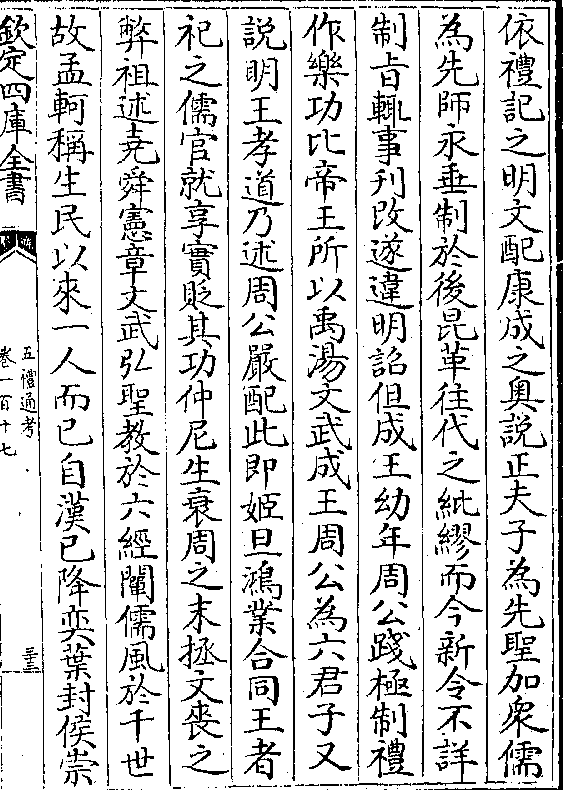 依禮記之明文配康成之奥説正夫子為先聖加衆儒
為先師永垂制於後昆革往代之紕繆而今新令不詳
制旨輒事刋改遂違明詔但成王幼年周公踐極制禮
作樂功比帝王所以禹湯文武成王周公為六君子又
説明王孝道乃述周公嚴配此即姬旦鴻業合同王者
祀之儒官就享實貶其功仲尼生衰周之末拯文喪之
弊祖述堯舜憲章文武弘聖教於六經闡儒風於千世
故孟軻稱生民以來一人而已自漢已降奕葉封侯崇
欽定四庫全書
五禮通考
卷一百十七
三三